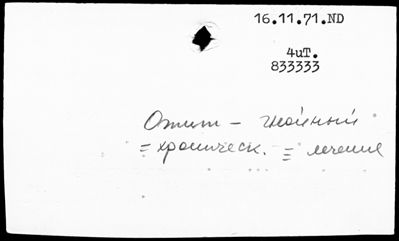 16.11.71.ND
4иТ.
833333
Отит – гнойный
= хроническ. = лечение